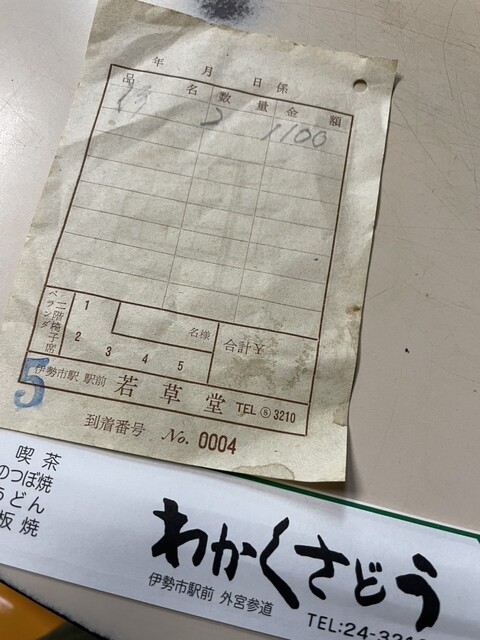 年 月 日 係
品 名 数 量 金 額
2 1100
ベランダ
二階椅子席
1
名様
2 3 4 5
合計¥
5
伊勢市駅 駅前 若草堂 TEL ⑤ 3210
到着番号 No. 0004
喫茶
のつぼ焼
うどん
板焼
わかくさどう
伊勢市駅前 外宮参道
TEL:24-32